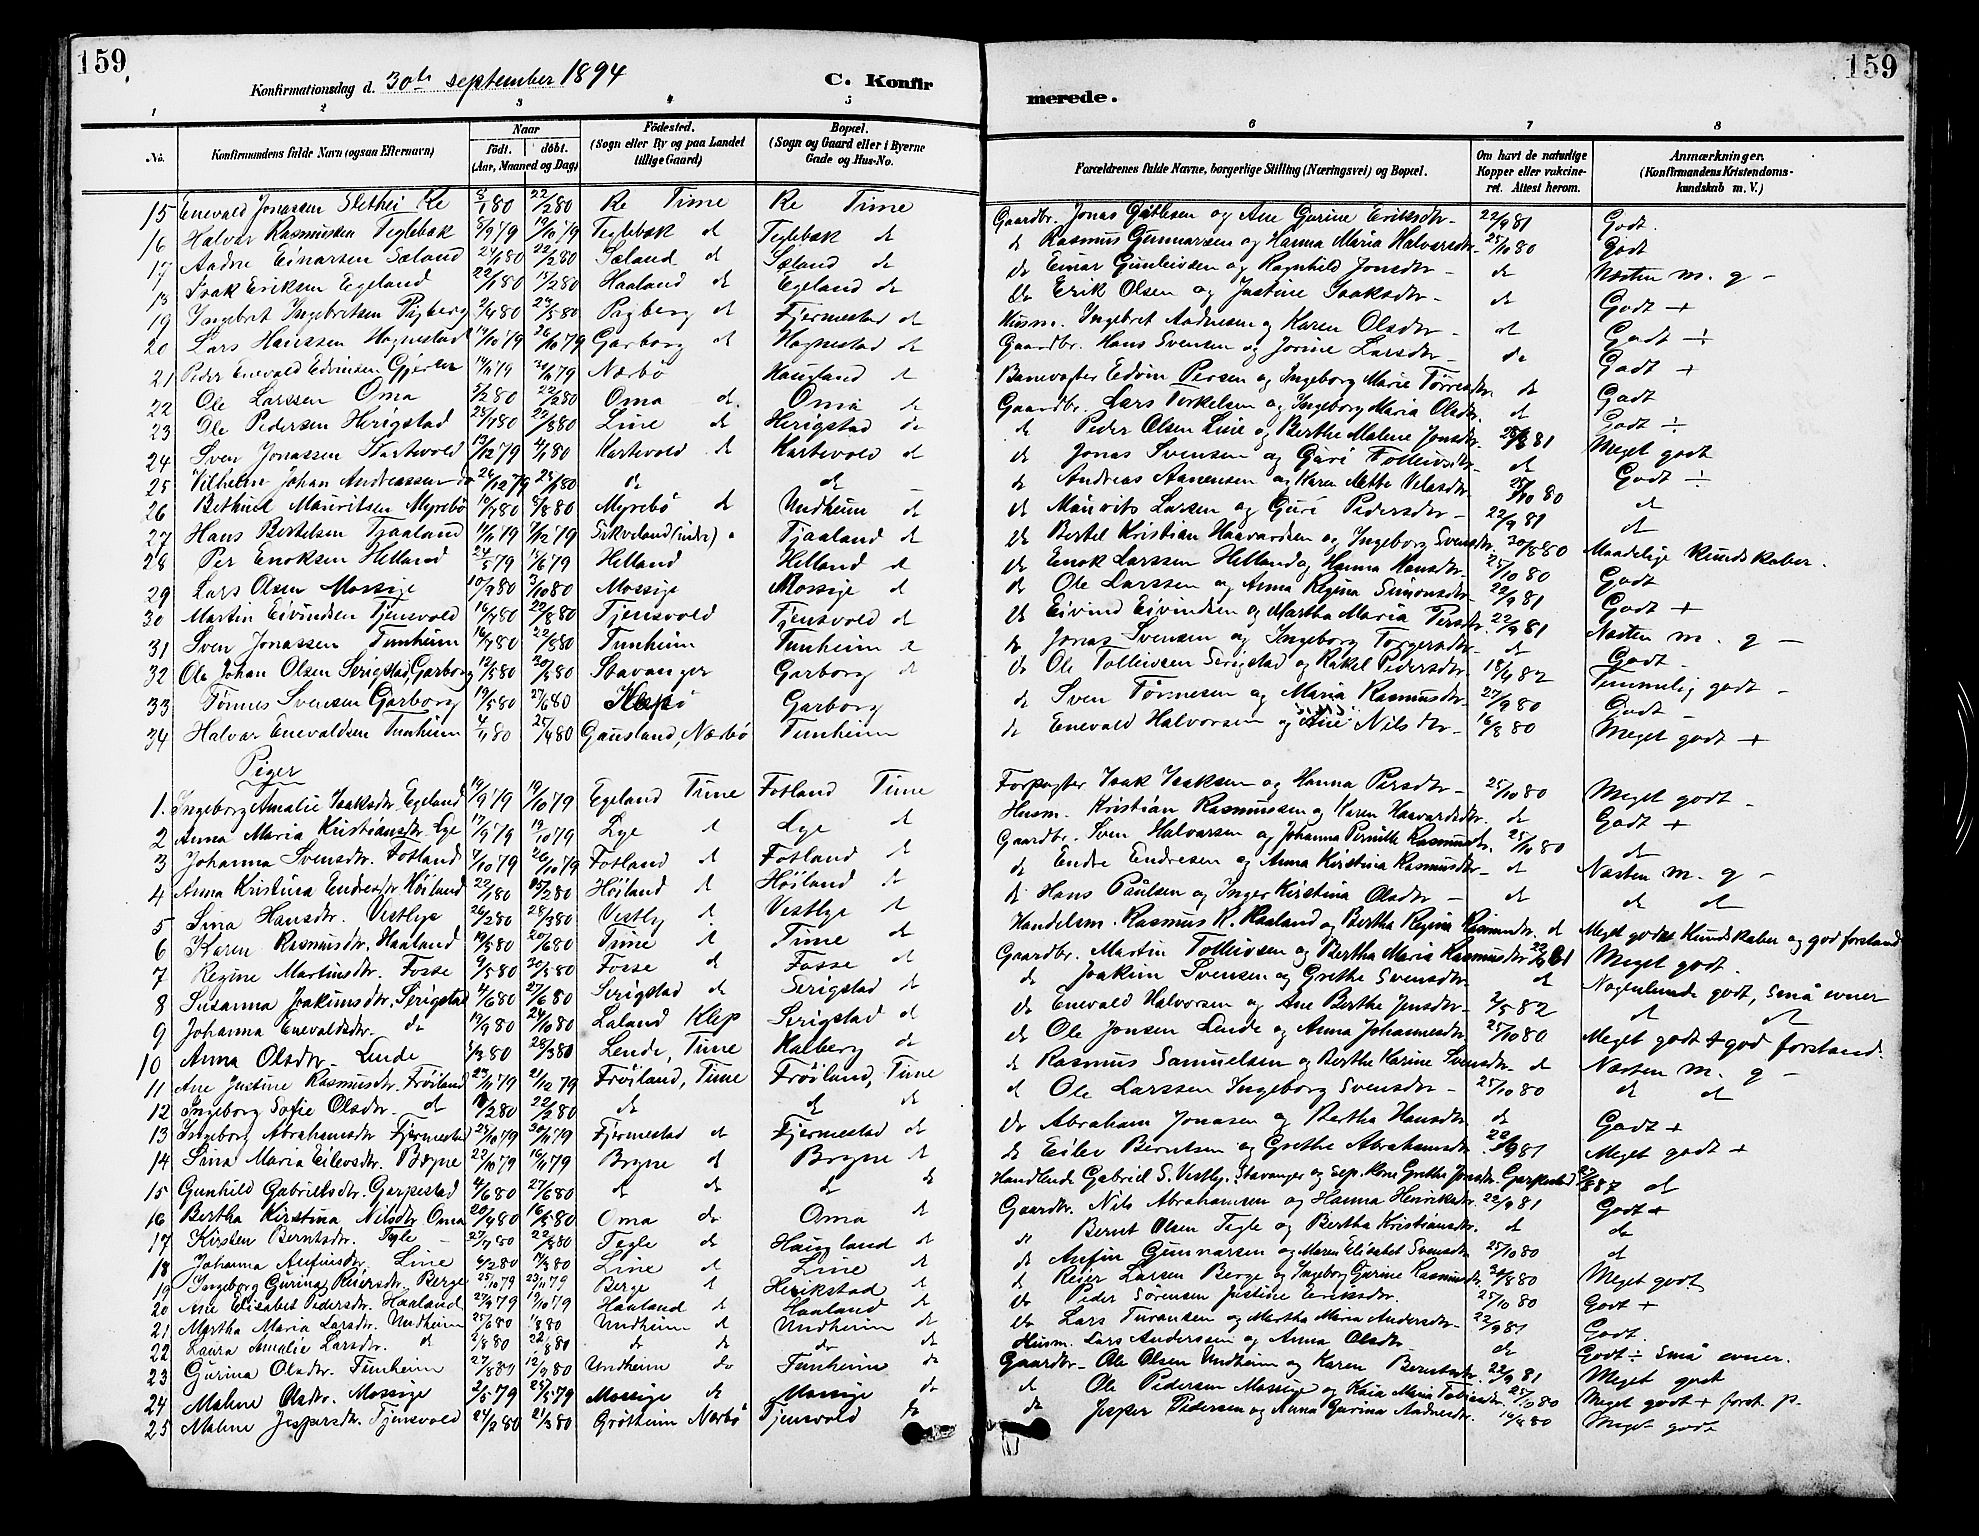 159
159
Konfirmationsdag d. 30te september 1894
C. Konfirmerede.
1 2 3 4 5 6 7 8
No. Konfirmandens fulde Navn (ogsaa Efternavn) Naar født. døbt. (Aar, Maaned og Dag) Fødested. (Sogn eller By og paa Landet tillige Gaard) Bopæl. (Sogn og Gaard eller i Byerne Gade og Hus-No. Forældrenes fulde Navne, borgerlige Stilling (Næringsvei) og Bopæl. Om havt de naturlige Kopper eller vaccineret. Attest herom. Anmærkninger. (Konfirmandens Kristendomskundskab m. V.)
15 Enevald Jonassen Slethei Re 8/1 80 22/2 80 Re Time Re Time Gaardbr. Jonas Gitlesen og Ane Gurine Eriksdtr. 22/9 81 Godt.
16 Halvar Rasmussen Teglebæk 8/9 79 19/10 79 Teglebæk d Teglebæk d d Rasmus Gunnarsen og Hanna Maria Halvarsdtr. 25/10 80 Godt
17 Aadne Einarsen Sæland 24/1 80 22/2 80 Sæland d Sæland d do Einar Gunleivsen og Ragnhild Jonsdtr. d Næsten m. g -
18 Isak Eriksen Egeland 22/1 80 15/2 80 Haaland d Egeland d do Erik Olsen og Justine Isaksdtr. d Godt +
19 Ingebrit Ingebritsen Pigberg 2/4 80 23/5 80 Pigberg d Fjermestad d Husm. Ingebret Aadnesen og Karen Olsdtr. d Godt ÷
20 Lars Hanssen Hognestad 14/10 79 26/10 79 Garborg d Hognestad d Gaardbr. Hans Svensen og Jorine Larsdtr. do Godt +
21 Peder Enevald Edvinsen Gjerten 14/11 79 30/11 79 Nærbø Haugland d Banevogter Edvin Persen og Ingeborg Marie Tørresdtr. d Godt
22 Ole Larssen Oma 5/2 80 22/2 80 Oma d. Oma d Gaardbr. Lars Torkelsen og Ingeborg Maria Olsdtr. d Godt ÷
23 Ole Pedersen Herigstad 25/7 80 22/8 80 Line d Herigstad do d Peder Olsen Line og Berthe Malene Jonsdtr. 81 Meget godt
24 Sven Jonassen Kartevold 13/12 79 4/1 80 Kartevold d Kartevold d d Jonas Svensen og Guri Tolleivsdtr. d Godt ÷
25 Vilhelm Johan Andreassen do 26/12 79 25/1 80 do d d Andreas Aanensen og Karen Mette Velasdtr. 25/10 80 d
26 Bethuel Mauritsen Myrebø 10/7 80 8/8 80 Myrebø d Undheim d d Mauritz Larsen og Guri Pedersdtr. 22/9 81 d
27 Hans Bertelsen Tjaaland 11/11 79 7/12 79 Sikveland (indre) Tjaaland d do Bertel Kristian Haavardsen og Ingeborg Svensdtr. 20/8 80 Maadelige Kundskaber.
28 Per Enoksen Helland 24/5 79 15/6 79 Helland Helland d do Enok Larssen Helland og Hanna Hansdtr. 25/10 80 Godt
29 Lars Olsen Mossige 10/9 80 3/10 80 Mossige Mossige d d Ole Larssen og Anna Regina Simonsdtr. 22/9 81 Godt +
30 Martin Eivindsen Tjensvold 16/7 80 22/8 80 Tjensvold Tjensvold d d Eivind Eivindsen og Martha Maria Persdtr. 22/9 81 Næsten m. g -
31 Sven Jonassen Tunheim 16/7 80 22/8 80 Tunheim Tunheim d d Jonas Svensen og Ingeborg Torgersdtr. d Godt -
32 Ole Johan Olsen Serigstad, Garborg 12/3 80 20/5 80 Stavanger Garborg d do Ole Tolleivsen Serigstad og Rakel Pedersdtr. 18/4 82 Temmelig godt -
33 Tønnes Svensen Garborg 19/5 80 27/6 80 Klep Garborg d Sven Tønnesen og Maria Rasmusdtr. 27/9 80 Godt -
34 Halvar Enevaldsen Tunheim 4/4 80 25/4 80 Gausland, Nærbø Tunheim d Enevald Halvorsen og Ane Nilsdtr. 16/8 80 Meget godt +
Piger
1. Ingeborg Amalie Isaksdtr. Egeland 19/9 79 19/10 79 Egeland Time Fotland Time Forpagter Isak Isaksen og Hanna Persdtr. 25/10 80 Meget godt -
2 Anna Maria Kristiansdtr. Lye 17/9 79 19/10 79 Lye d Lye d Husm. Kristian Rasmussen og Karen Haavardsdtr. d Godt +
3 Johanna Svensdtr. Fotland 7/10 79 26/10 79 Fotland d Fotland d Gaardbr. Sven Halvarsen og Johanna Pernille Rasmusdtr. 25/10 80 d
4 Anna Kristina Endresdtr Høiland 22/1 80 15/2 80 Høiland d Høiland d d Endre Endresen og Anna Kirstina Rasmusdtr. d Næsten m. g -
5 Sina Hansdtr. Vestlye 26/2 80 28/3 80 Vestly d Vestlye d d Hans Paulsen og Inger Kirstina Olsdtr. d d d
6 Karen Rasmusdtr. Haaland 19/5 80 20/6 80 Time d Time d Handelsm. Rasmus R. Haaland og Bertha Regina Rasmusdtr. d Meget gode Kundskaber og god forstand
7 Regine Martinsdtr. Fosse 9/5 80 20/5 80 Fosse d Fosse d Gaardbr. Martin Tolleivsen og Bertha Maria Rasmusdtr 22/9 81 Meget godt.
8 Susanna Joakimsdtr. Serigstad 4/6 80 27/6 80 Serigstad d Serigstad d d Joakim Svensen og Grethe Svensdtr. d Nogenlunde godt, små evner
9 Johanna Enevaldsdtr. do 19/9 80 24/10 80 Laland Klep Serigstad d do Enevald Halvorsen og Ane Berthe Jensdtr. 2/5 82 d d
10 Anna Olsdtr. Lende 5/3 80 28/3 80 Lende, Time Kalberg d d Ole Jonsen Lende og Anna Johannesdtr. 25/10 80 Meget godt + god forstand.
11 Ane Justine Rasmusdtr. Frøiland 23/11 79 21/12 79 Frøiland, Time Frøiland, Time d Rasmus Samuelsen og Berthe Karine Svensdtr. d Næsten m. g -
12 Ingeborg Sofie Olsdtr. d 2 80 22/2 80 d d d d Ole Larssen Ingeborg Svensdtr. 25/10 80 d d
13 Ingeborg Abrahamsdtr Fjermestad 25/10 79 30/11 79 Fjermestad d Fjermestad d do Abraham Jonasen og Bertha Hansdtr. d Godt +
14 Sina Maria Eilevsdtr. Bryne 22/10 79 16/11 79 Bryne d Bryne d d Eilev Berntsen og Grethe Abrahamsdtr. 22/9 81 Meget godt +
15 Gunhild Gabrielsdtr. Garpestad 4/6 80 27/6 80 d d d d Handlende Gabriel S. Vestly, Stavanger og sep. Kone Grethe Jonsdtr. Garpestad 87 d
16 Bertha Kirstina Nilsdtr Oma 20/4 80 16/5 80 Oma do Oma d Gaardbr. Nils Abrahamsen og Hanna Henriksdtr. 22/9 81 Godt +
17 Kirsten Berntsdtr. Tegle 27/7 80 22/8 80 Tegle do Haugland d d Bernt Olsen Tegle og Bertha Kristiansdtr. d do
18 Johanna Aufinsdtr. Line 6/2 80 14/3 80 Line d Line d d Aufin Gunnarsen og Maren Elisabet Svensdtr. 25/10 80 d
19 Ingeborg Gurina Reiersdtr. Berge 25/10 79 23/11 79 Berge d Herikstad d d Reier Larsen Berge og Ingeborg Gurine Rasmusdtr. 20/8 80 Meget godt
20 Ane Elisabet Pedersdtr. Haaland 27/9 79 19/10 79 Haaland d Haaland d do Peder Sørensen Justine Eriksdtr. 25/10 80 Godt +
21 Martha Maria Larsdtr. Undheim 25/6 80 1/8 80 Undheim d Undheim d do Lars Turansen og Martha Maria Andersdtr. 22/9 81 Godt.
22 Laura Amalie Larsdtr. d 2/8 80 22/8 80 d d do d Husm. Lars Anderssen og Anna Olsdtr d Godt ÷ små evner.
23 Gurina Olsdtr. Tunheim 27/8 80 12/9 80 Undheim do Tunheim do Gaardbr. Ole Olsen Undheim og Karen Berntsdtr. 22/9 81 Meget godt
24 Malene Olsdtr. Mossige 2/5 79 25/5 79 Mossige do Mossige do d Ole Pedersen Mossige og Kaia Maria Tobiasdtr. 25/10 80 Meget godt + forst. p.
25 Malene Jespersdtr. Tjensvold 24/2 80 21/3 80 Grødtheim Nærbø Tjensvold do do Jesper Pedersen og Anna Gurina Aadnesdtr. 16/8 80 Meget godt